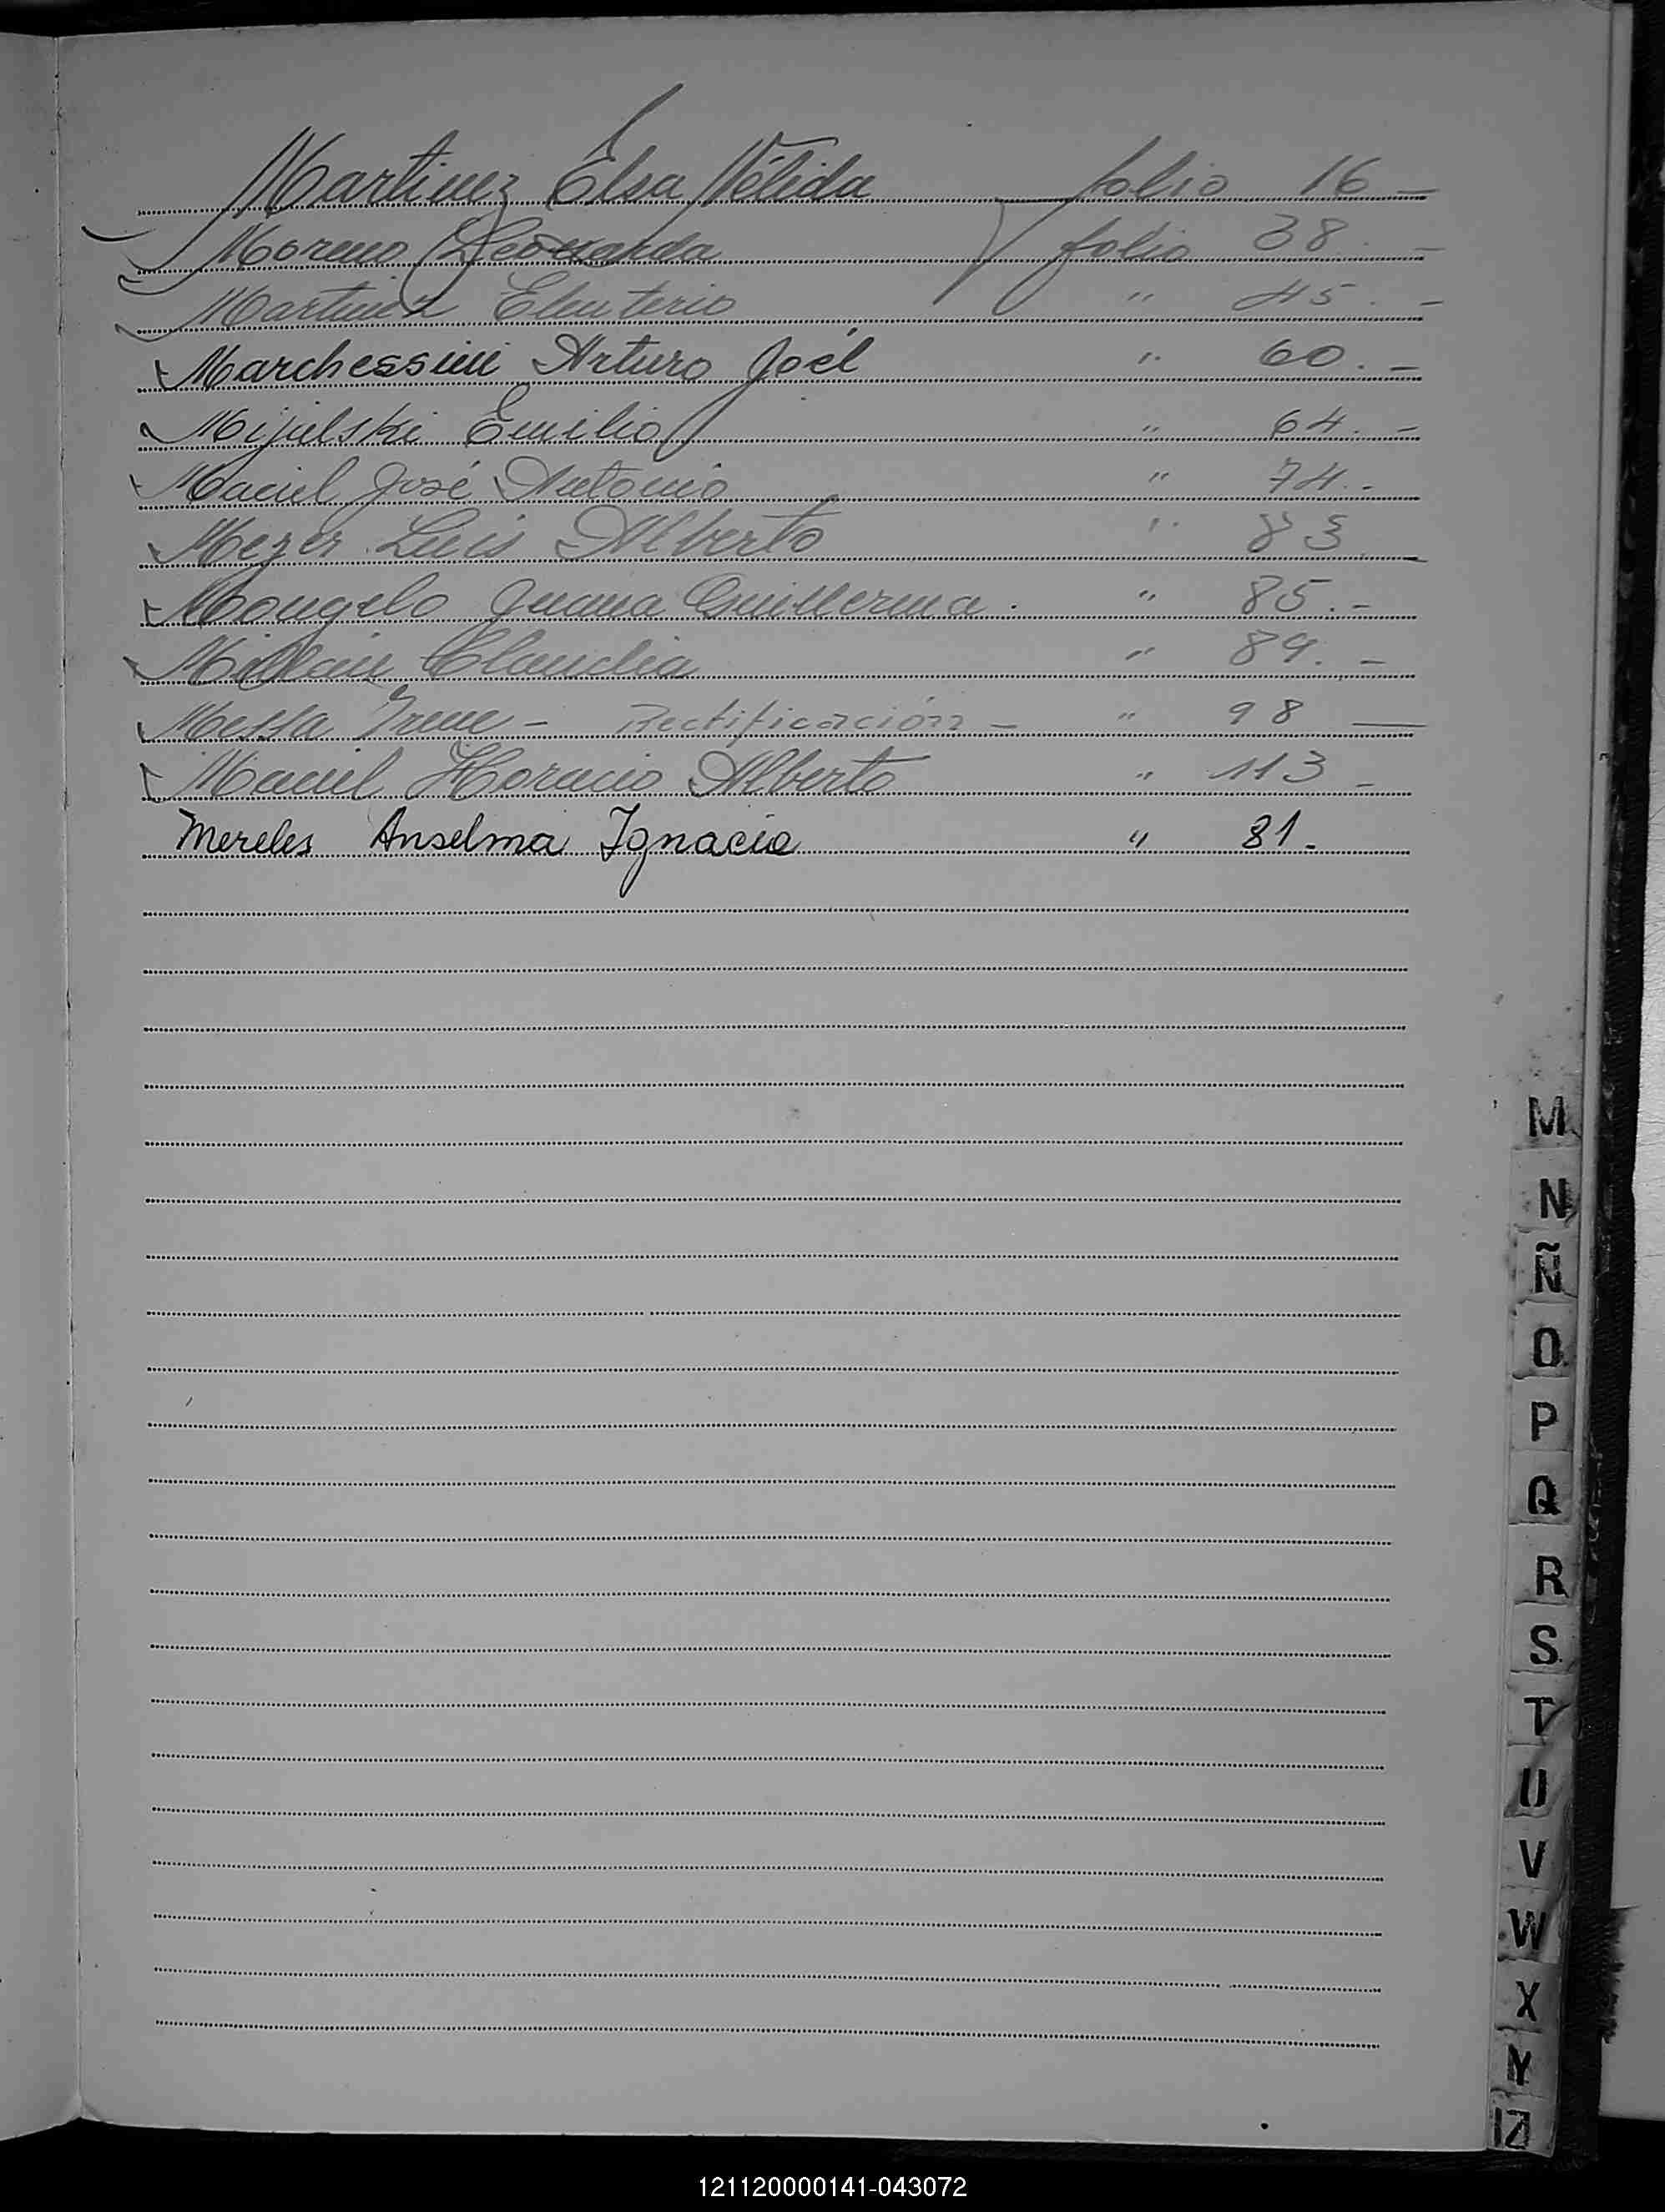 Martinez Elsa Nélida folio 16 -
Moreno Leocarda folio 38. -
Martinez Eleuterio " 45. -
Marchessini Arturo Joél " 60. -
Mijulski Emilio " 64. -
Maciel José Antonio " 74. -
Mezer Luis Alberto " 83
Mongelo Juana Guillerma. " 85. -
Millan Claudia " 89. -
Messa Irene - Rectificación - " 98 —
Maciel Horacio Alberto " 113 -
Mereles Anselma Ignacia " 81. -
M
N
Ñ
O
P
Q
R
S
T
U
V
W
X
Y
Z
121120000141-043072